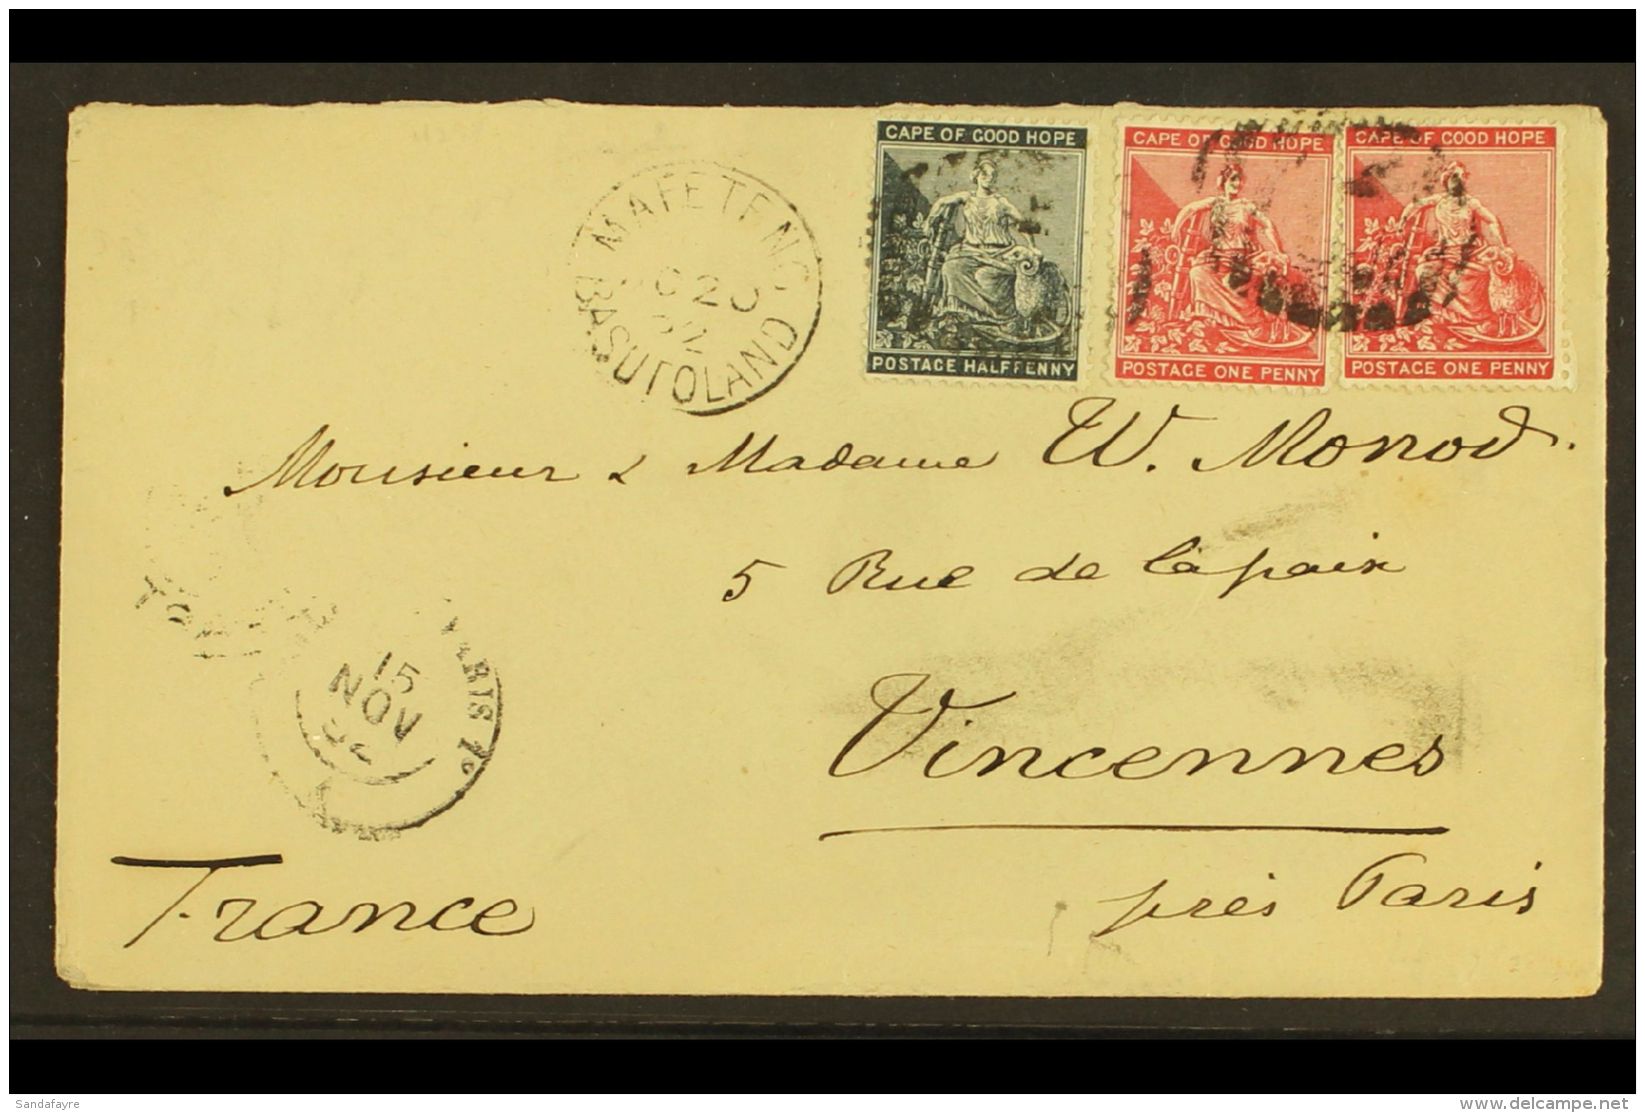 CAPE OF GOOD HOPE
POSTAGE HALFPENNY
CAPE OF GOOD HOPE
POSTAGE ONE PENNY
CAPE OF GOOD HOPE
POSTAGE ONE PENNY
MAFETENG
C 20
92
BASUTOLAND
Monsieur & Madame W. Monod.
5 Rue de la paix
Vincennes
près Paris
France
PARIS
15
NOV
Sandafayre
www.delcampe.net